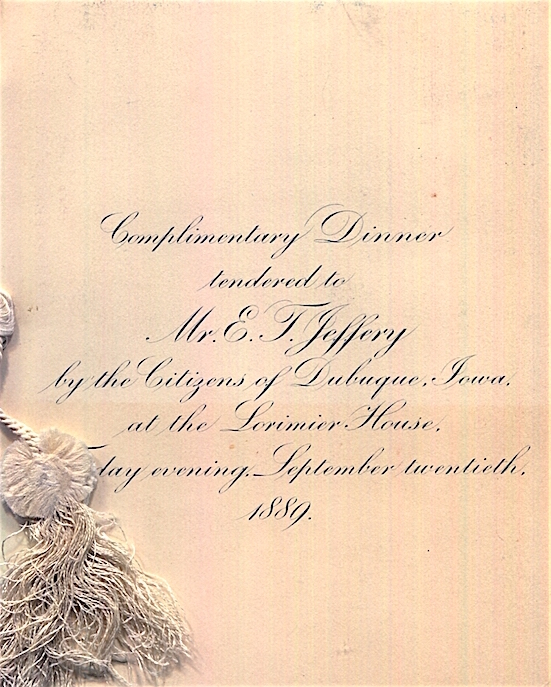 Complimentary Dinner
tendered to
Mr. E. T. Jeffery
by the Citizens of Dubuque, Iowa,
at the Lorimier House,
day evening, September twentieth,
1889.